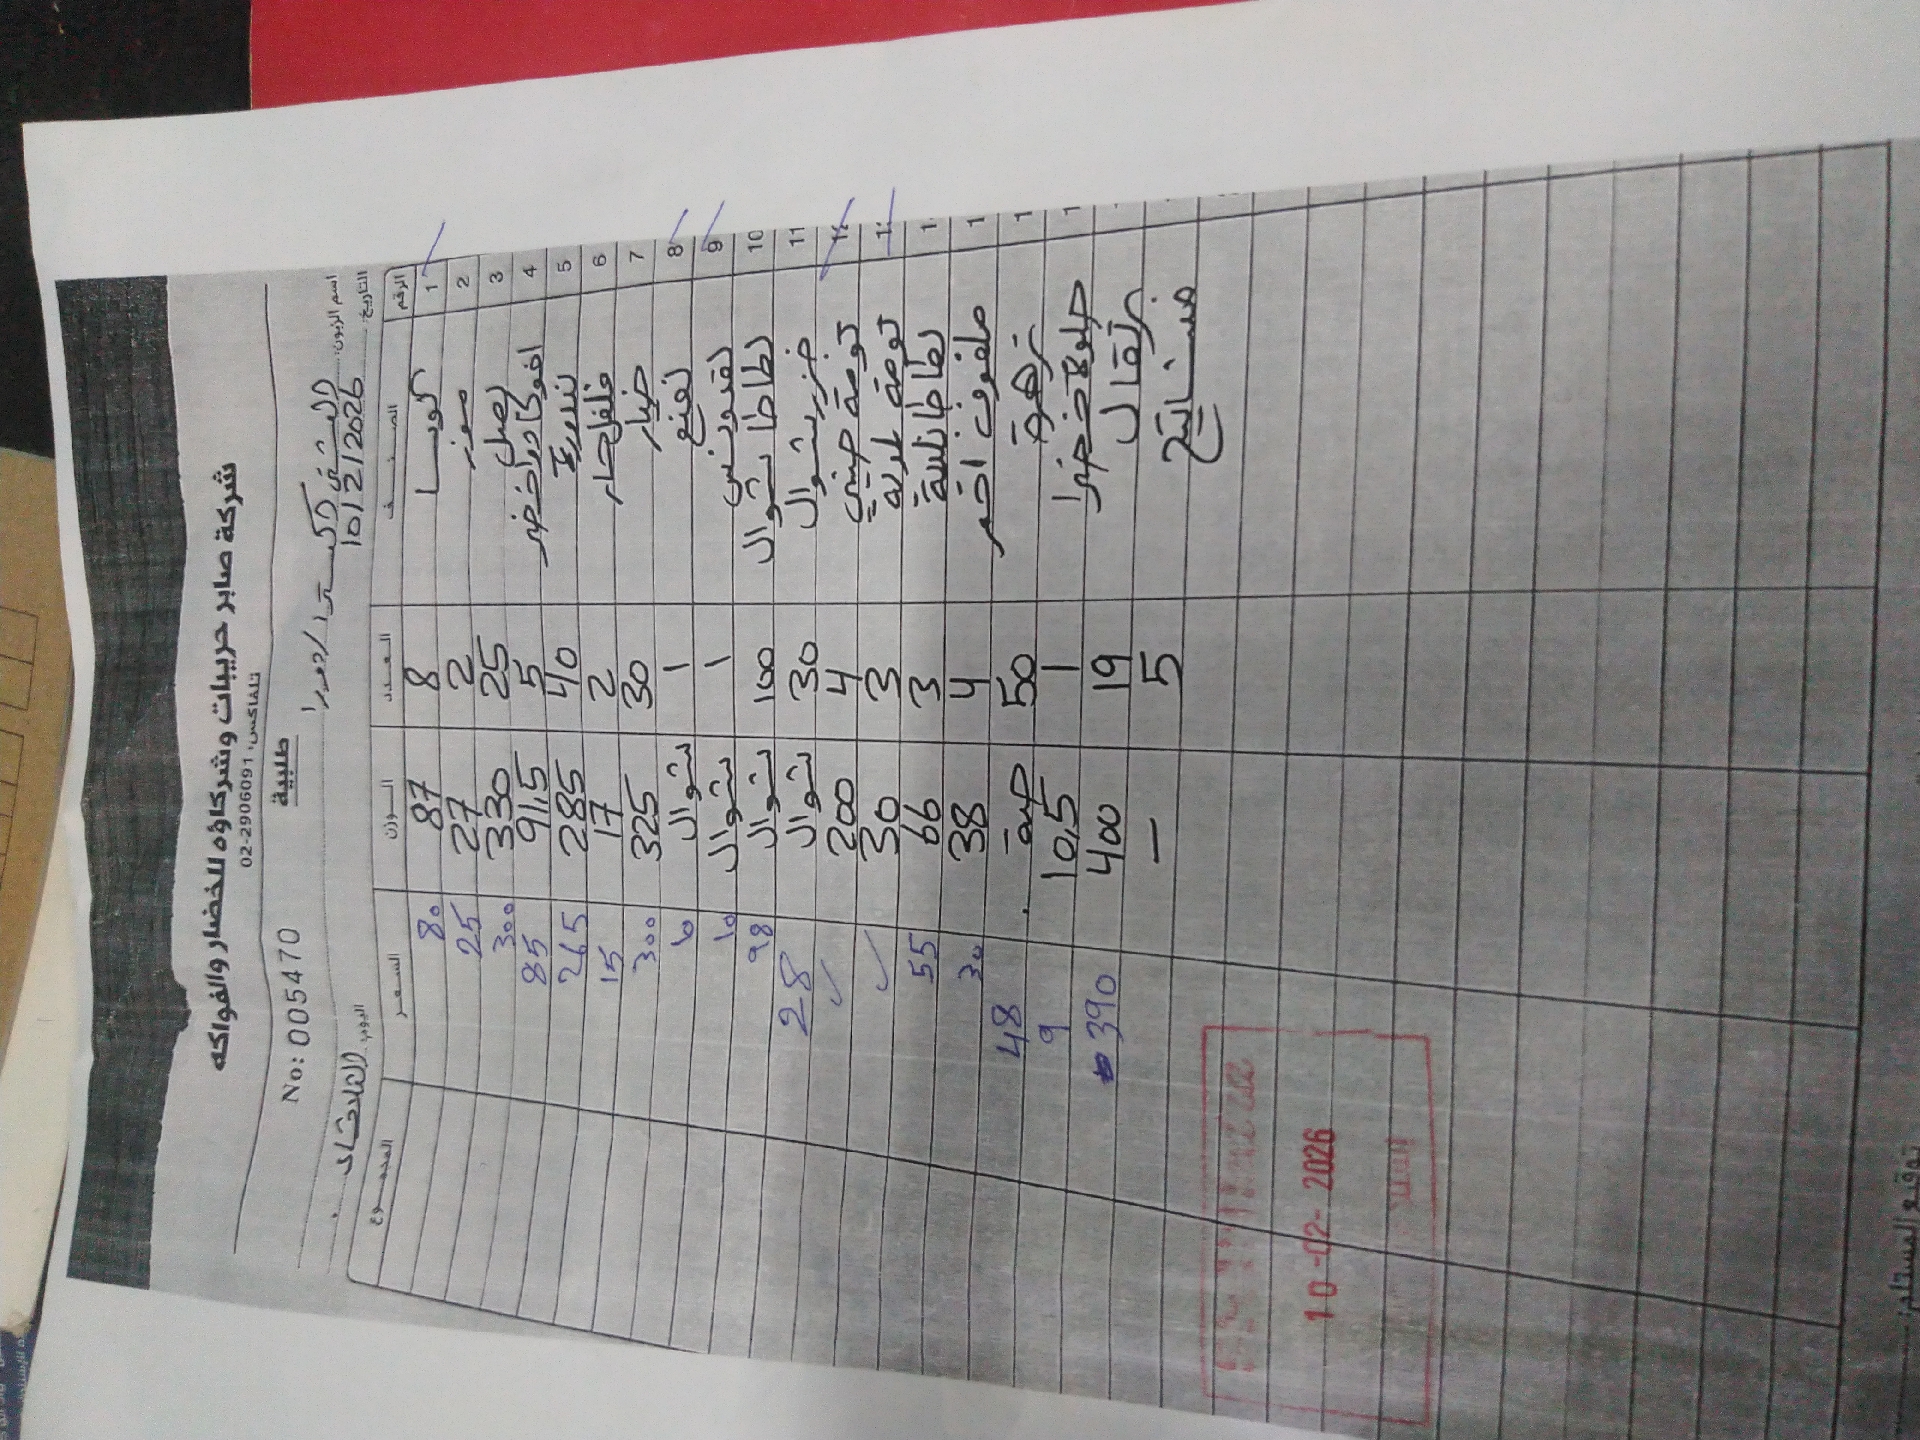 شركة صابر حريبات وشركاؤه للخضار والفواكه
تلفاكس: 02-2906091
طلبية
No: 005470
اسم الزبون:
التاريخ: 10/2/2026 اليوم: الثلاثاء
الرقم الصنف العدد الوزن السعر المجموع
1 كوسا 8 87 80
2 موز 2 27 25
3 بصل 25 330 300
4 افوكادو اخضر 5 91,5 85
5 بندورة 40 285 265
6 فلفل حار 2 17 15
7 خيار 30 325 300
8 نعنع 1 شوال 10
9 بقدونس 1 شوال 10
10 بطاطا شوال 100 شوال 98
11 جزر شوال 30 شوال 28
12 ثومة صيني 4 200
ثومة بلدية 3 30
بطاطا 3 66 55
ملفوف احمر 4 38 30
زهرة 50 حبة 48
خضرا 1 10,5 9
برتقال 19 400 390
سبانخ 5 –
10-02-2026
توقيع المستلم: